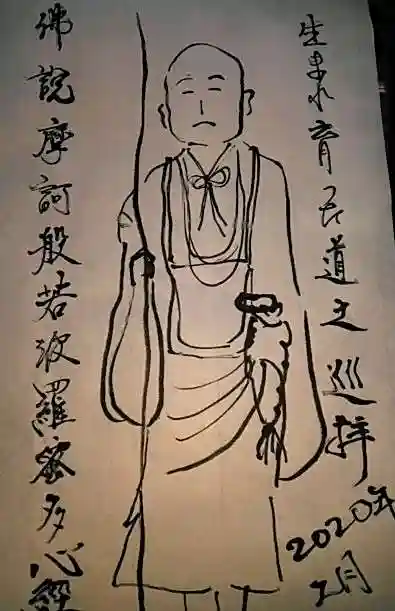 生まれ育道之巡拝
2020年
2月
佛説摩訶般若波羅蜜多心經